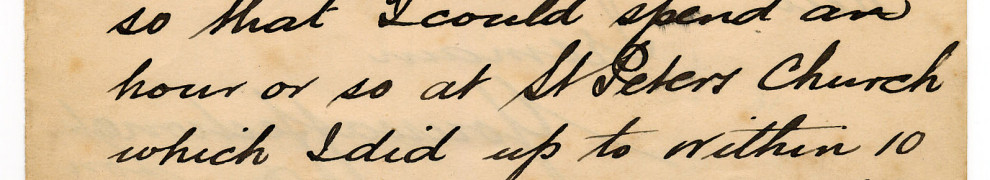 so that I could spend an
hour or so at St Peters Church
which I did up to within 10